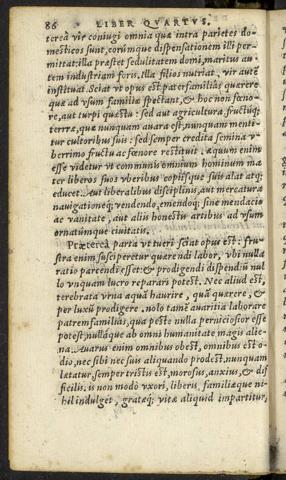 86 LIBER QVARTVS.
tereà vir coniugi omnia quæ intra parietes do-
mesticos sunt, eorúmque dispensationem illi per-
mittat: illa præstet sedulitatem domi, maritus au-
tem industriam foris. Illa filios nutriat, vir autē
instituat. Sciat vt opus est patrifamiliâs quærere
quæ ad vsum familiæ spectant, & hoc non fœno-
re, aut turpi quæstu: sed aut agricultura, fructuq;
terræ, quæ nunquam auara est, nunquam menti-
tur cultoribus suis: sed semper credita semina v-
berrimo fructu ac fœnore restituit. æquum enim
esse videtur vt communis omnium hominum ma
ter liberos suos vberibus copiísque suis alat atq;
educet. Aut liberalibus disciplinis, aut mercatura
nauigationeq́; vendendo, emendoq́; sine mendacio
ac vanitate, aut aliis honestis artibus ad vsum
ornatúmque ciuitatis.
Prætereà parta vt tueri sciat opus est: fru-
stra enim susciperetur quærendi labor, vbi nulla
ratio parcendi esset: & prodigendi dispendiū nul
lo vnquam lucro reparari potest. Nec aliud est,
terebrata vrna aquā haurire, quā quærere, &
per luxū prodigere. nolo tamē auaritia laborare
patremfamiliâs, qua peste nulla perniciosior esse
potest, nulláque ab omni humanitate magis alie-
na. Auarus enim omnibus obest, omnibus est o-
dio, nec sibi nec suis aliquando prodest, nunquam
lætatur, semper tristis est, morosus, anxius, & dif
ficilis. is non modò vxori, liberis, familiæque ni-
hil indulget, gratæq́; vitæ aliquid impartitur,